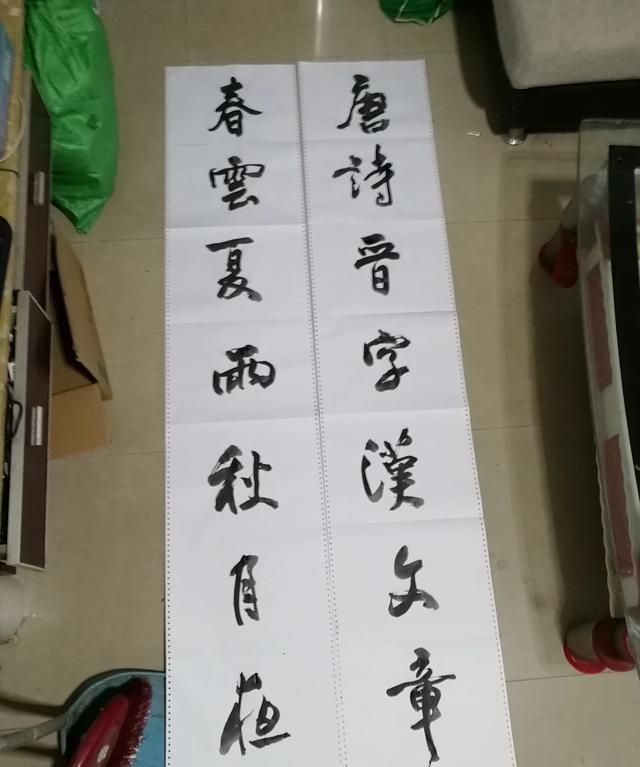 唐詩晋字漢文章
春雲夏雨秋月